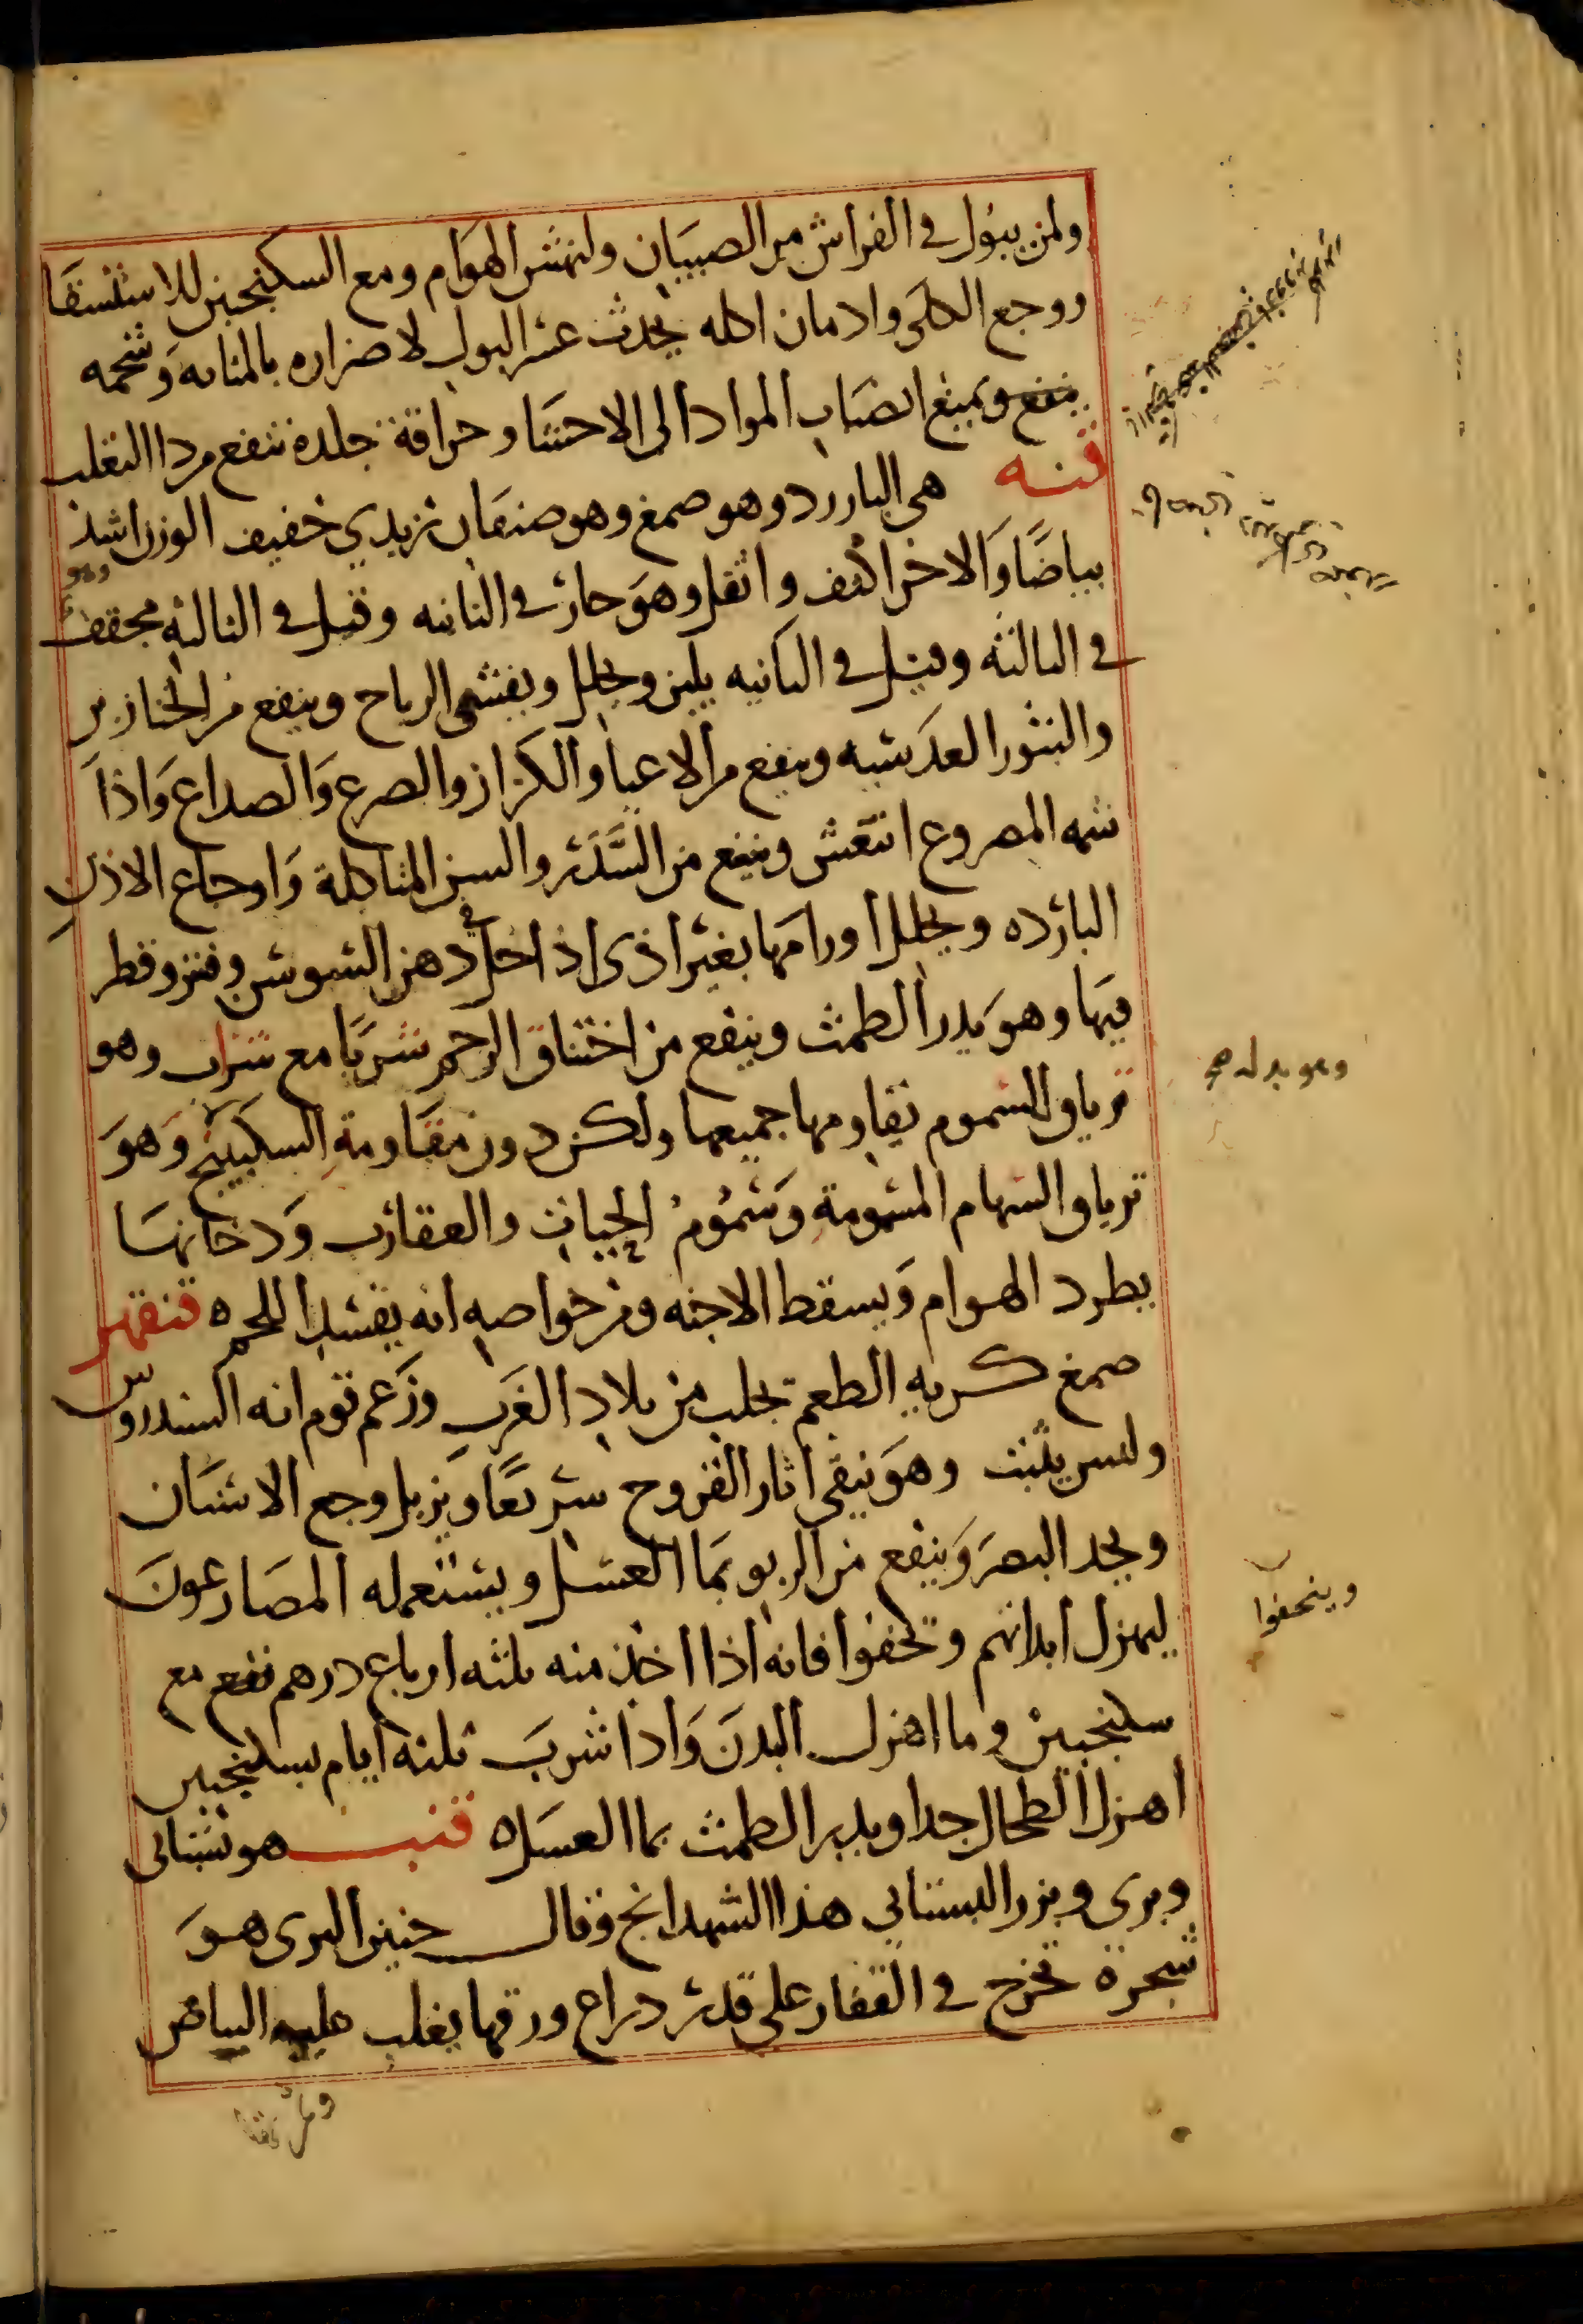 ولمن يبول في الفراش من الصبيان ولنهش الهوام ومع السكنجبين للاستسقا
ووجع الكلى وادمان اكله يحدث عسر البول لاضراره بالمثانه وشحمه
ينفع ويمنع انصباب المواد الى الاحشا وحراقة جلده تنفع من داالثعلب
قنه هي البارزد وهو صمغ وهو صنفان زبدي خفيف الوزن اشد
بياضًا وَالاخر اكثف واثقل وهوَ حار في الثانيه وقيل في الثالثه مجفف
في الثالثه وقيل في الثانيه يلين ويحلل ويفشى الرياح وينفع من الخنازير
والبثور العدسيه وينفع من الاعيا والكزاز والصرع وَالصداع وَاذا
شمه المصروع انتعش وينفع من السَّدَر والسن المتاكلة وَاوجاع الاذن
البارده ويحلل اورامها بغير اذى اذا حل في دهن السوسن وفتر وقطر
فيها وهوَ يدر الطمث وينفع من اختناق الرحم شربًا مع شراب وهو
ترياق السموم يقاومها جميعها ولكن دون مقاومةِ السكبينج وَهوَ
ترياق السهام المسمومةِ وَسمُومُ الحيات والعقارب وَدخانها
يطرد الهوام وَيسقط الاجنه ومن خواصه انه يفسد اللحم ه قنقهر
صمغ كريه الطعم يجلب من بلاد الغرب وزَعم قوم انه السندروس
وليس يثبت وهوَ ينقى اثار القروح سريعًا ويزيل وجع الاسنان
ويحد البصرَ وَينفع من الربو بما العسل ويستعمله المصارعونَ
ليهزل ابدانهم وتخفوا فانه اذا اخذ منه ثلثه ارباع درهم نفع مع
سكنجبين وما اهزل البدنَ وَاذا شربَ ثلثه ايام بسكنجبين
اهزل الطحال جدا ويدر الطمث بما العسل ه قنب هو بستانى
وبرى وبزر البستانى هذا الشهدانج وقال حنين البرى هوَ
شجرة تخرج في القفار على قدر دراع ورقها يغلب عليه البياض
وهو بدله صح
وينحفوا